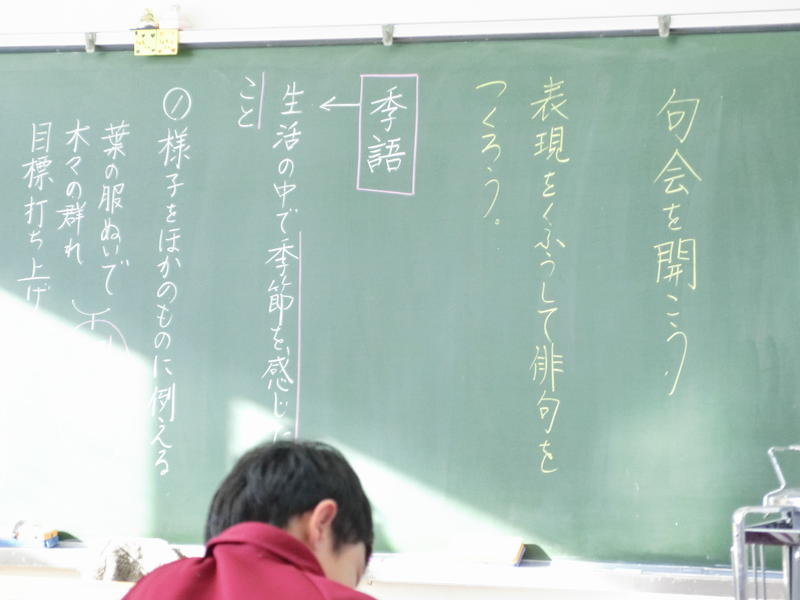 句会を開こう
表現をくふうして俳句を
つくろう。
季語
生活の中で季節を感じた
こと
①様子をほかのものに例える
葉の服ぬいで
木々の群れ
目標打ち上げ